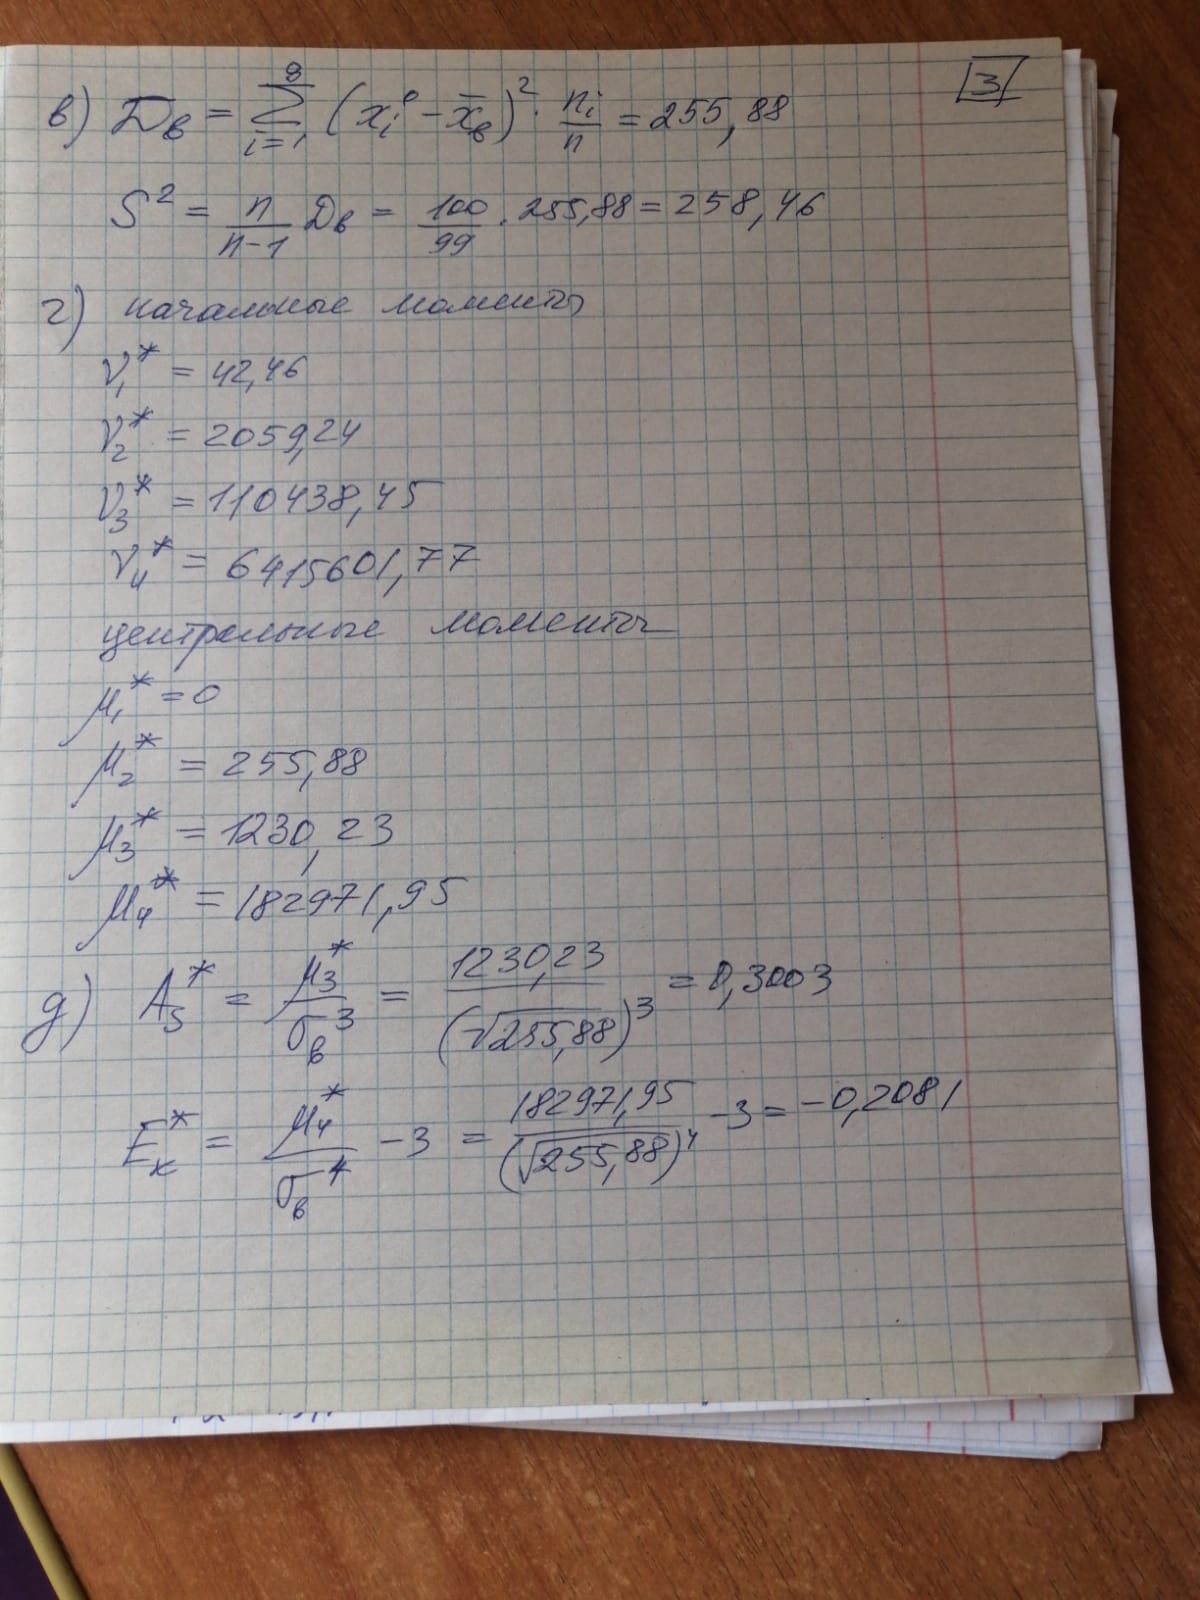 3
в) Dв = ∑_{i=1}^{8} (x_i° − x̄_в)² · n_i/n = 255,88
S² = n/(n−1) Dв = 100/99 · 255,88 = 258,46
г) начальные моменты
ν₁* = 42,46
ν₂* = 2059,24
ν₃* = 110438,45
ν₄* = 6415601,77
центральные моменты
μ₁* = 0
μ₂* = 255,88
μ₃* = 1230,23
μ₄* = 182971,95
д) A_s* = μ₃*/σ_в³ = 1230,23/(√255,88)³ = 0,3003
E_к* = μ₄*/σ_в⁴ − 3 = 182971,95/(√255,88)⁴ − 3 = −0,2081